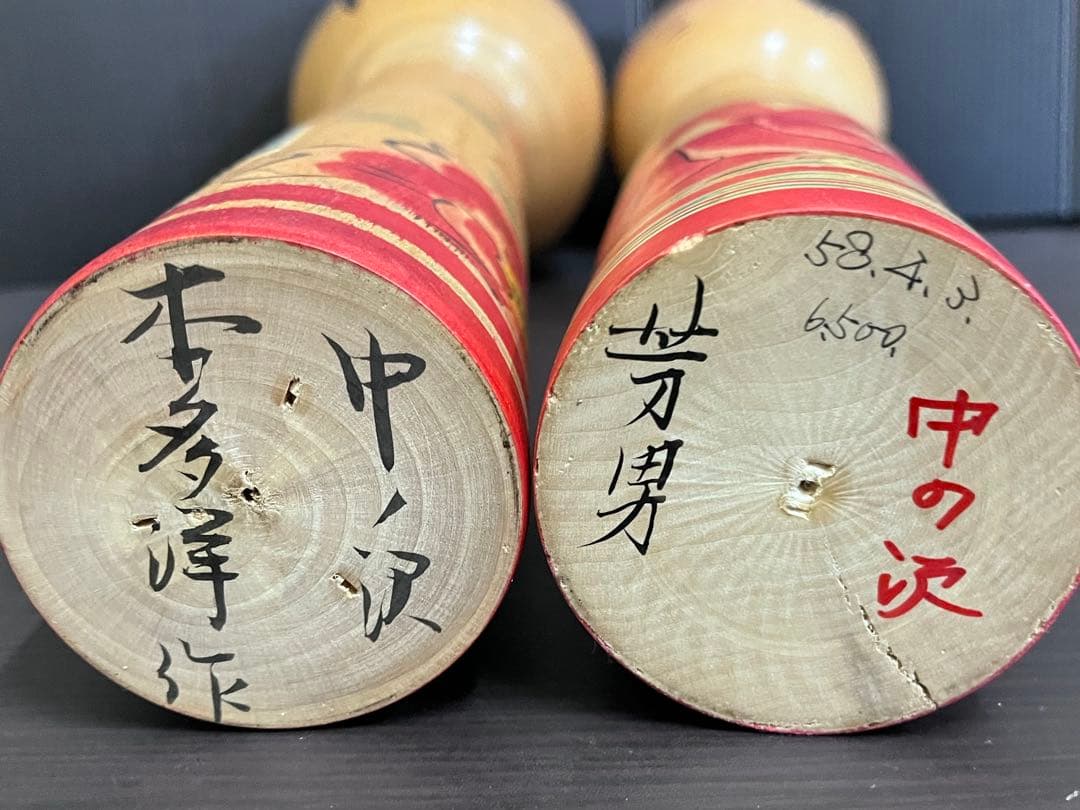 中ノ沢
本多洋作
58.4.3.
6,500.
中の沢
芳男